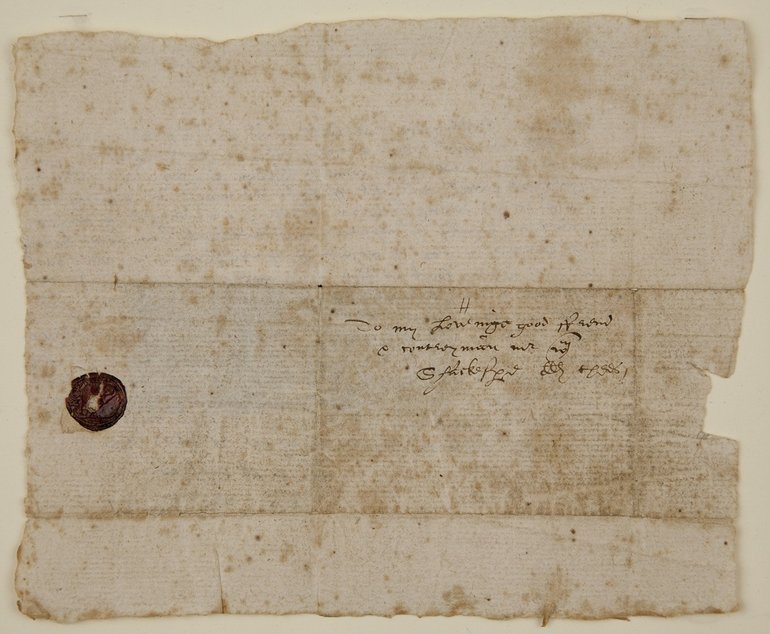 H
To my Loveinge good ffrend
& contreymann mr wm
Shackespe dd thees